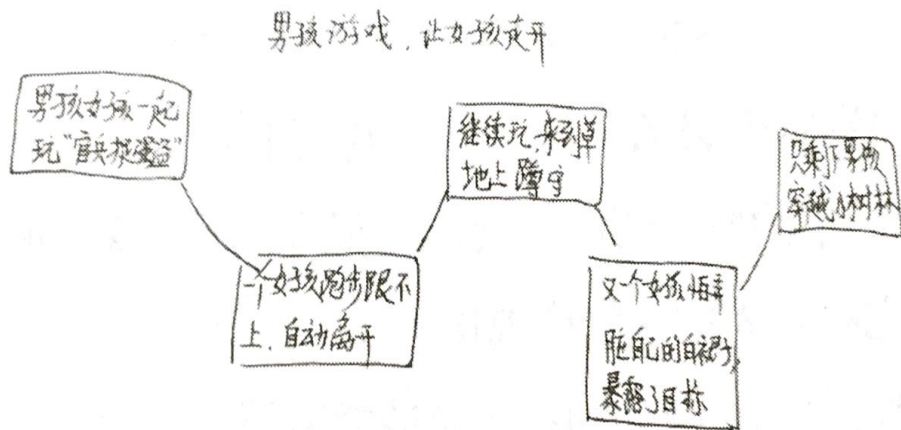 男孩游戏，让女孩走开
男孩女孩一起
玩“官兵捉强盗”
一个女孩跑步跟不
上，自动离开
继续玩，来到草
地上蹲守
又一个女孩怕弄
脏自己的白裙子，
暴露了目标
只剩下男孩
穿越小树林